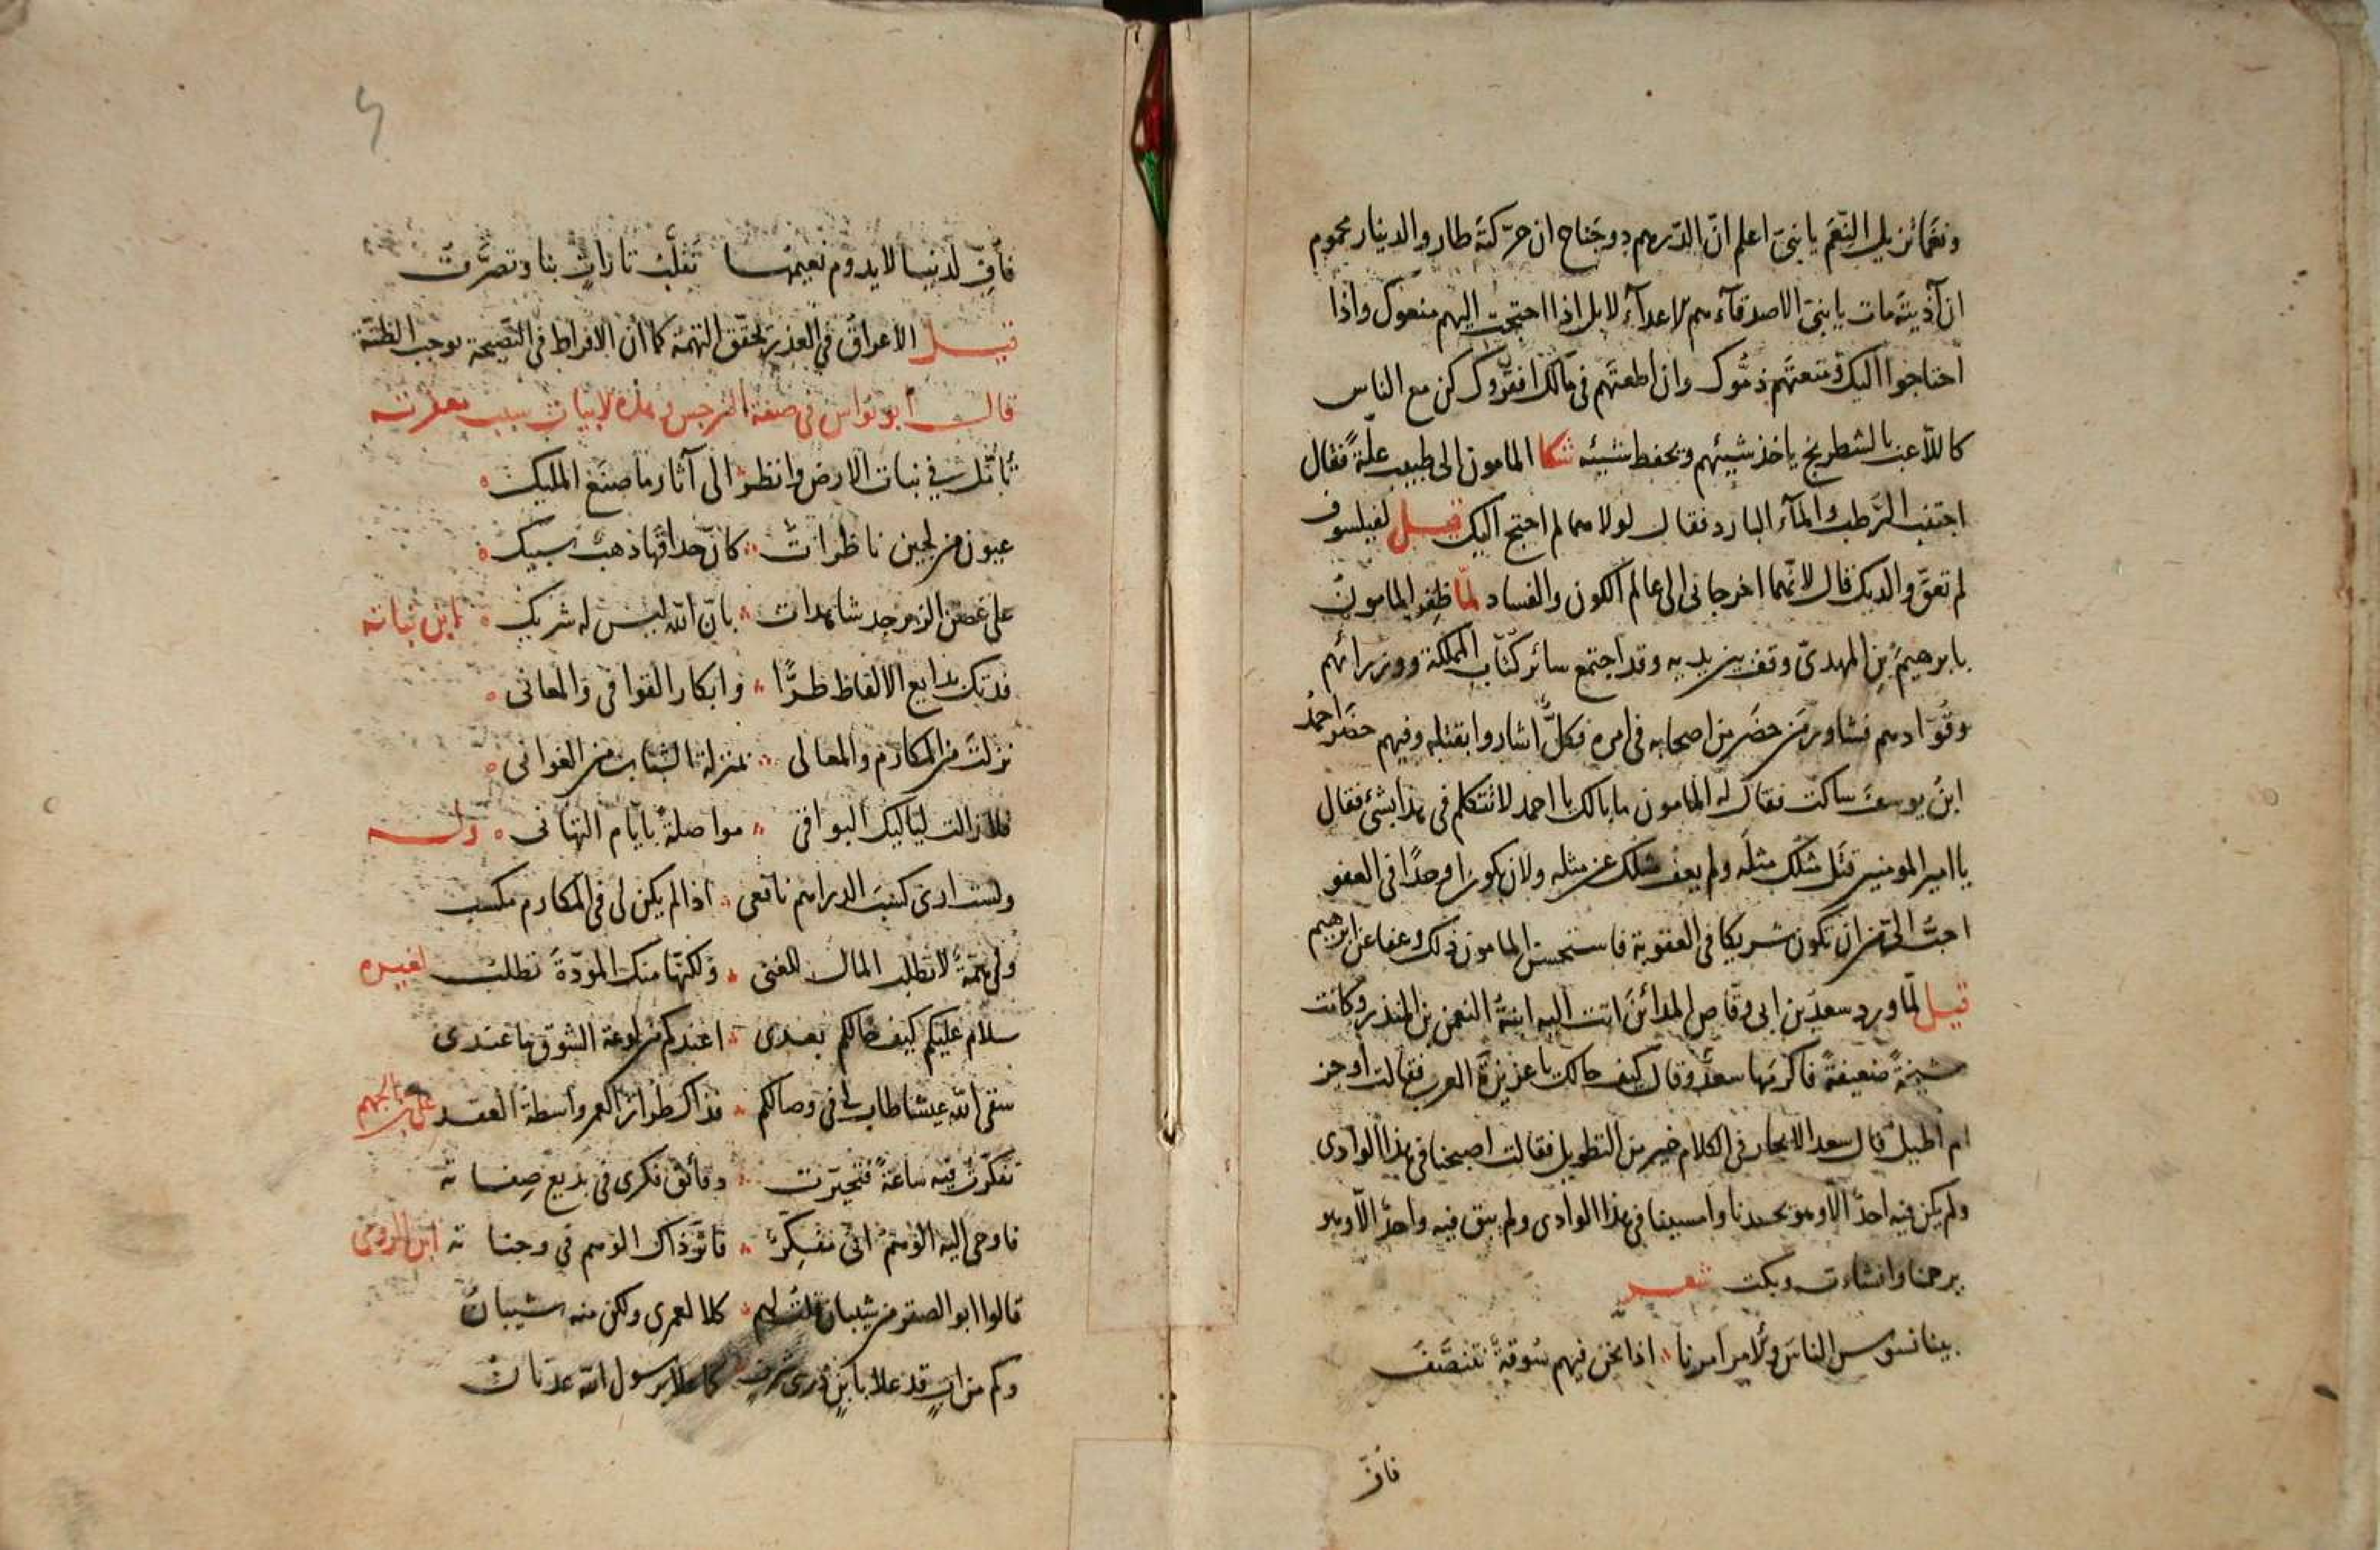 ونعما نزيل النّعم يا بنىّ اعلم انّ الدّرهم ذو جَناح ان حرّكتَه طار والدينار محموم
ان آذيته مات يا بنىّ الاصدقآء هم الاعدآء لا بل اذا احتجت اليهم منعوك واذا
احتاجوا اليك ومنعتهم ذمّوك وان اطعتهم فى مالك افقروك كن مع الناس
كاللّاعب بالشطرنج ياخذ شيئهم ويحفظ شيئه شكا المامون الى طبيب علّةً فقال
اجتنب الرّطب والمآء البارد فقال لولاهما لم احتج اليك قيل لفيلسوف
لم تعقّ والديك قال لانّهما اخرجانى الى عالم الكون والفساد لمّا ظفر المامونُ
بابرهيمَ بن المهدىّ وقف بين يديه وقد اجتمع سائر كتّاب المملكة ووزرائهم
وقوّادهم فشاور من حضر من اصحابه فى امره فكلٌّ اشاروا بقتله وفيهم حضر احمدُ
ابنُ يوسفَ ساكت فقال له المامون ما بالك يا احمد لا تتكلم فى هذا بشئ فقال
يا امير المومنين قتل مثلك مثله ولم يعف مثلك عن مثله ولان تكون اوحدًا فى العفو
احبّ الىّ من ان تكون شريكا فى العقوبة فاستحسن المامون ذلك وعفا عن ابرهيم
قيل لمّا ورد سعد بن ابى وقّاص المدائنَ اتت اليه ابنةُ النعمن بن المنذر وكانت
شيخةً ضعيفةً فاكرمها سعدٌ وقال كيف حالك يا عزيزةَ العرب فقالت أوجز
ام اطيل قال سعد الايجاز فى الكلام خير من التطويل فقالت اصبحنا فى هذا الوادى
ولم يكن فيه احدٌ الّا وهو يحسدنا وامسينا فى هذا الوادى ولم يبق فيه واحدٌ الّا وهو
يرحمنا وانشاءت وبكت شعر
بينا نسوس الناسَ والامر امرنا اذا نحن فيهم سُوقةٌ نتنصّفُ
فافّ
فأفٍّ لدنيا لا يدوم نعيمها تقلّبُ تاراتٍ بنا وتصرَّفُ
قيل الاعراق فى العذر يحقّق التهمة كما ان الافراط فى النّصيحة يوجب الظنّة
قال ابو نواس فى صفة النرجس وهذه الابيات سبب مغفرته
تأمّل فى نبات الارض وانظر الى آثار ما صنع المليك
عيون من لجين ناظراتٌ كانّ حداقها ذهبٌ سبيك
على غصن الزبرجد شاهدات بانّ الله ليس له شريك لابن نباته
فديتك بدايع الالفاظ طرًّا وابكار القوافى والمعانى
نزلت من المكارم والمعالى بمنزلة الشباب من الغوانى
فلا زالت لياليك البواقى مواصلةً بايّام التهانى وله
ولست ارى كسب الدراهم نافعى اذا لم يكن لى فى المكارم مكسب
ولى همّةٌ لا تطلب المال للغنى ولكنّها منك المودّةَ تطلب لغيره
سلام عليكم كيف حالكم بعدى اعندكم من لوعة الشوق ما عندى
سقى الله عيشا طاب لى فى وصالكم فذاك طراز العمر واسطة العقد علىّ بن الجهم
تفكّرت فيه ساعةً فتحيّرت دقائق فكرى فى بديع صفاته
فاوحى اليه الوهمُ انّى مفكّرٌ فاثّر ذاك الوهم فى وجناته ابن الرومى
قالوا ابو الصقر من شيبان قلت لهم كلا لعمرى ولكن منه شيبانُ
وكم من ابٍ قد علا بابنٍ ذرى شرفٍ كما علا برسول الله عدنانُ